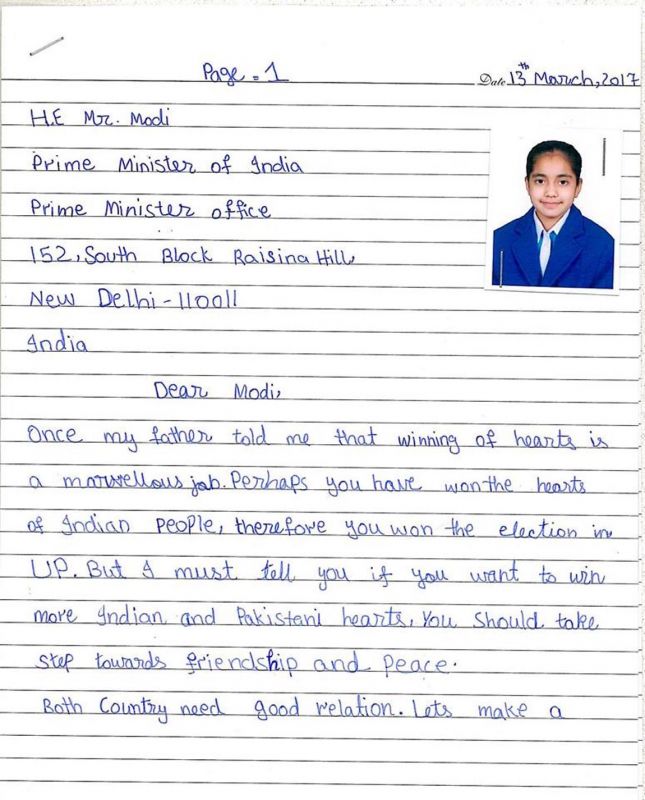 Page = 1
Date 13th March, 2017
H.E Mr. Modi
Prime Minister of India
Prime Minister office
152, South Block Raisina Hill,
New Delhi - 110011
India
Dear Modi,
Once my father told me that winning of hearts is
a marvellous job. Perhaps you have won the hearts
of Indian People, therefore you won the election in
UP. But I must tell you if you want to win
more Indian and Pakistani hearts, You should take
step towards friendship and Peace.
Both Country need good relation. Lets make a